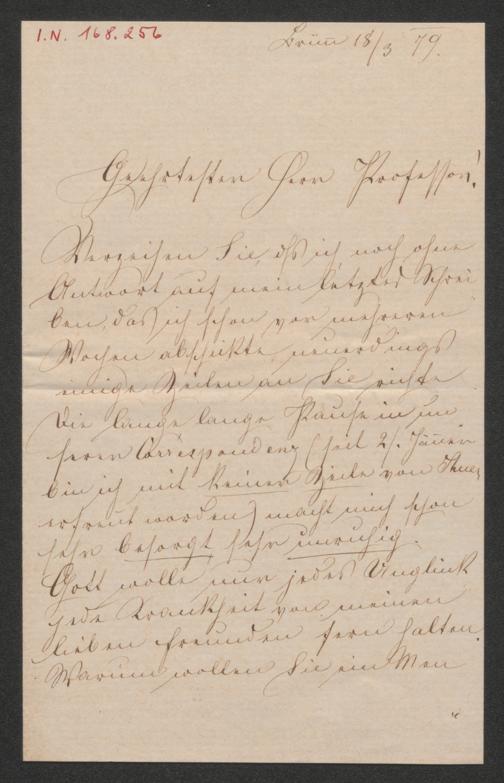 I.N. 168.256
Brünn 18/3 79.
Geehrtester Herr Professor!
Verzeihen Sie, dß ich noch ohne
Antwort auf mein letztes Schrei
ben, das ich schon vor mehreren
Wochen abschikte, neuerdings
einige Zeilen an Sie richte
Die lange lange Pause in un
serer Correspondenz (seit 2/. Jänner
bin ich mit keiner Zeile von Ihnen
erfreut worden) macht mich schon
sehr besorgt sehr unruhig.
Gott wolle nur jedes Unglük
jede Krankheit von meinen
lieben Freunden fern halten.
Warum wollen Sie ein Men